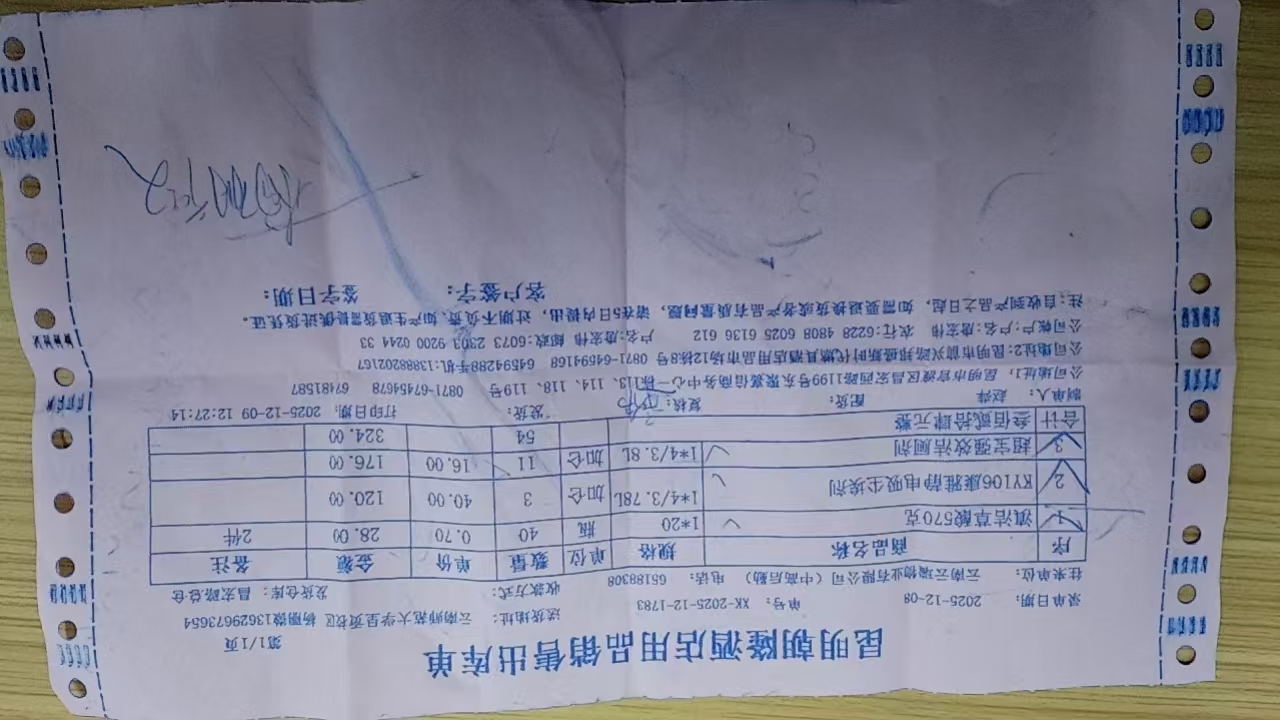 昆明朝隆酒店用品销售出库单
第1/1页
录单日期: 2025-12-08 单号: XK-2025-12-1783 送货地址: 云南师范大学呈贡校区 杨丽微13629673654
往来单位: 云南云瑞物业有限公司(中高后勤) 电话: 65188308 收款方式: 发货仓库: 昌宏路总仓
序 商品名称 规格 单位 数量 单价 金额 备注
1 滇洁草酸570克 1*20 瓶 40 0.70 28.00 2件
2 KY106康雅静电吸尘埃剂 1*4/3.78L 加仑 3 40.00 120.00
3 超宝强效洁厕剂 1*4/3.8L 加仑 11 16.00 176.00
合计 叁佰贰拾肆元整 54 324.00
制单人: 赵萍 配货: 复核: 发货: 打印日期: 2025-12-09 12:27:14
公司地址1, 昆明市官渡区昌宏西路1199号东聚嘉信商务中心一栋113、114、118、119号 0871-67454678 67481587
公司地址2: 昆明市前兴路邦盛新时代燃具酒店用品市场12栋8号 0871-64594168 64594288手机:13888202167
公司帐户:户名:唐宏伟 农行:6228 4808 6025 6136 612 户名:唐宏伟 邮政:6073 2303 9200 0244 33
注:自收到产品之日起, 如需要退换货或者产品有质量问题, 请在5日内提出, 过期不负责.如产生退货需提供进货凭证。
客户签字: 签字日期: